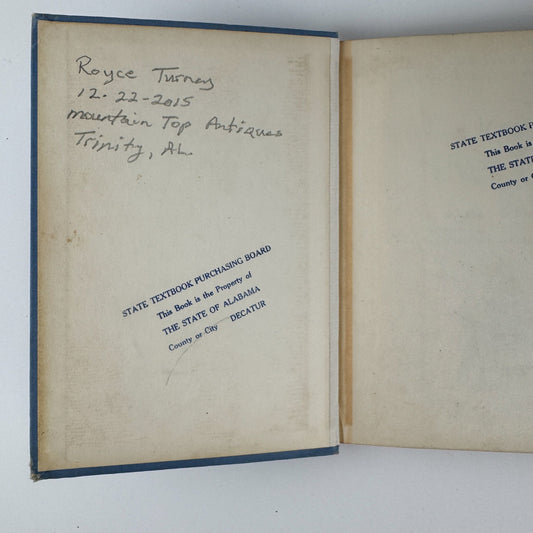 Royce Turney
12-22-2015
mountain Top Antiques
Trinity, AL.
STATE TEXTBOOK PURCHASING BOARD
This Book is the Property of
THE STATE OF ALABAMA
County or City DECATUR
STATE TEXTBOOK
This Book is
THE STATE
County or